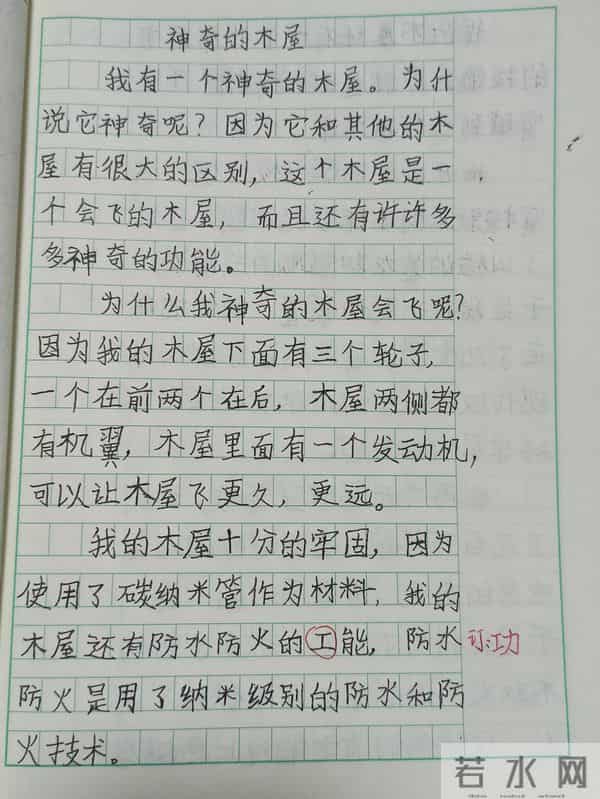 神奇的木屋
我有一个神奇的木屋。为什
说它神奇呢？因为它和其他的木
屋有很大的区别，这个木屋是一
个会飞的木屋，而且还有许许多
多神奇的功能。
为什么我神奇的木屋会飞呢？
因为我的木屋下面有三个轮子，
一个在前两个在后，木屋两侧都
有机翼，木屋里面有一个发动机，
可以让木屋飞更久，更远。
我的木屋十分的牢固，因为
使用了碳纳米管作为材料，我的
木屋还有防水防火的工能，防水 功
防火是用了纳米级别的防水和防
火技术。
若水网